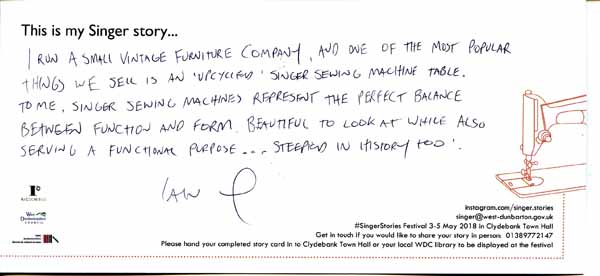 This is my Singer story...
I RUN A SMALL VINTAGE FURNITURE COMPANY, AND ONE OF THE MOST POPULAR
THINGS WE SELL IS AN 'UPCYCLED' SINGER SEWING MACHINE TABLE.
TO ME, SINGER SEWING MACHINES REPRESENT THE PERFECT BALANCE
BETWEEN FUNCTION AND FORM. BEAUTIFUL TO LOOK AT WHILE ALSO
SERVING A FUNCTIONAL PURPOSE... STEEPED IN HISTORY TOO!
IAN
West
Dunbartonshire
COUNCIL
instagram.com/singer.stories
singer@west-dunbarton.gov.uk
#SingerStories Festival 3-5 May 2018 in Clydebank Town Hall
Get in touch if you would like to share your story in person: 01389772147
Please hand your completed story card in to Clydebank Town Hall or your local WDC library to be displayed at the festival